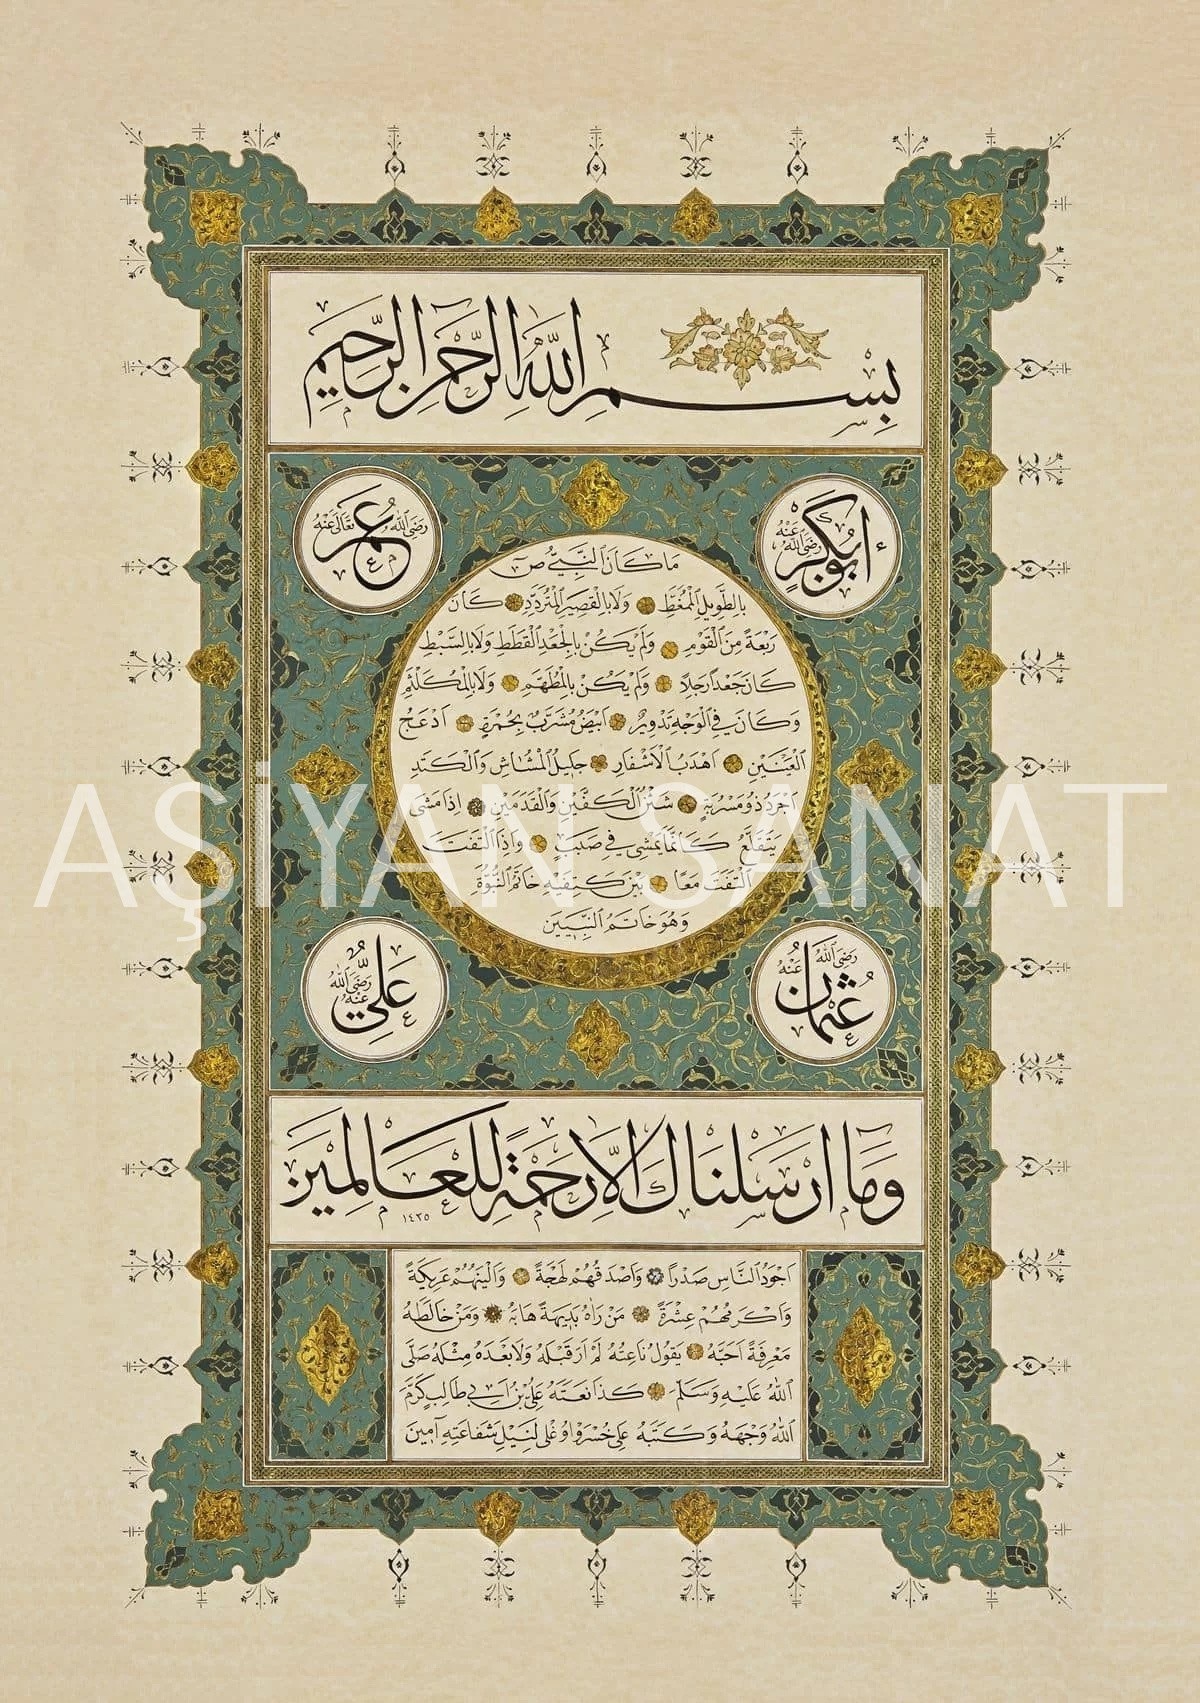 بِسْمِ اللّٰهِ الرَّحْمٰنِ الرَّحِيمِ
أبُوبَكْرٍ رَضِيَ اللّٰهُ عَنْهُ
عُمَرُ رَضِيَ اللّٰهُ تَعَالَى عَنْهُ
مَا كَانَ النَّبِيُّ ص
بِالطَّوِيلِ الْمُمَّغِطِ وَلَا بِالْقَصِيرِ الْمُتَرَدِّدِ كَانَ
رَبْعَةً مِنَ الْقَوْمِ وَلَمْ يَكُنْ بِالْجَعْدِ الْقَطَطِ وَلَا بِالسَّبْطِ
كَانَ جَعْدًا رَجِلًا وَلَمْ يَكُنْ بِالْمُطَهَّمِ وَلَا بِالْمُكَلْثَمِ
وَكَانَ فِي الْوَجْهِ تَدْوِيرٌ اَبْيَضُ مُشْرَبٌ بِحُمْرَةٍ اَدْعَجُ
الْعَيْنَيْنِ اَهْدَبُ الْاَشْفَارِ جَلِيلُ الْمُشَاشِ وَالْكَتَدِ
اَجْرَدُ ذُو مَسْرُبَةٍ شَثْنُ الْكَفَّيْنِ وَالْقَدَمَيْنِ اِذَا مَشَى
يَتَقَلَّعُ كَاَنَّمَا يَمْشِي فِي صَبَبٍ وَاِذَا الْتَفَتَ
الْتَفَتَ مَعًا بَيْنَ كَتِفَيْهِ خَاتَمُ النُّبُوَّةِ
وَهُوَ خَاتَمُ النَّبِيّينَ
AŞİYAN SANAT
عُثْمَانُ رَضِيَ اللّٰهُ عَنْهُ
عَلِيٌّ رَضِيَ اللّٰهُ عَنْهُ
وَمَا اَرْسَلْنَاكَ اِلَّا رَحْمَةً لِلْعَالَمِينَ
١٤٣٥
اَجْوَدُ النَّاسِ صَدْرًا وَاَصْدَقُهُمْ لَهْجَةً وَاَلْيَنُهُمْ عَرِيكَةً
وَاَكْرَمُهُمْ عِشْرَةً مَنْ رَاٰهُ بَدِيهَةً هَابَهُ وَمَنْ خَالَطَهُ
مَعْرِفَةً اَحَبَّهُ يَقُولُ نَاعِتُهُ لَمْ اَرَ قَبْلَهُ وَلَا بَعْدَهُ مِثْلَهُ صَلَّى
اللّٰهُ عَلَيْهِ وَسَلَّمَ كَذَا نَعَتَهُ عَلِيُّ بْنُ اَبِي طَالِبٍ كَرَّمَ
اللّٰهُ وَجْهَهُ وَكَتَبَهُ عَلِي خُسْرَوْ اوُغْلِي لِنَيْلِ شَفَاعَتِهِ اٰمِينَ